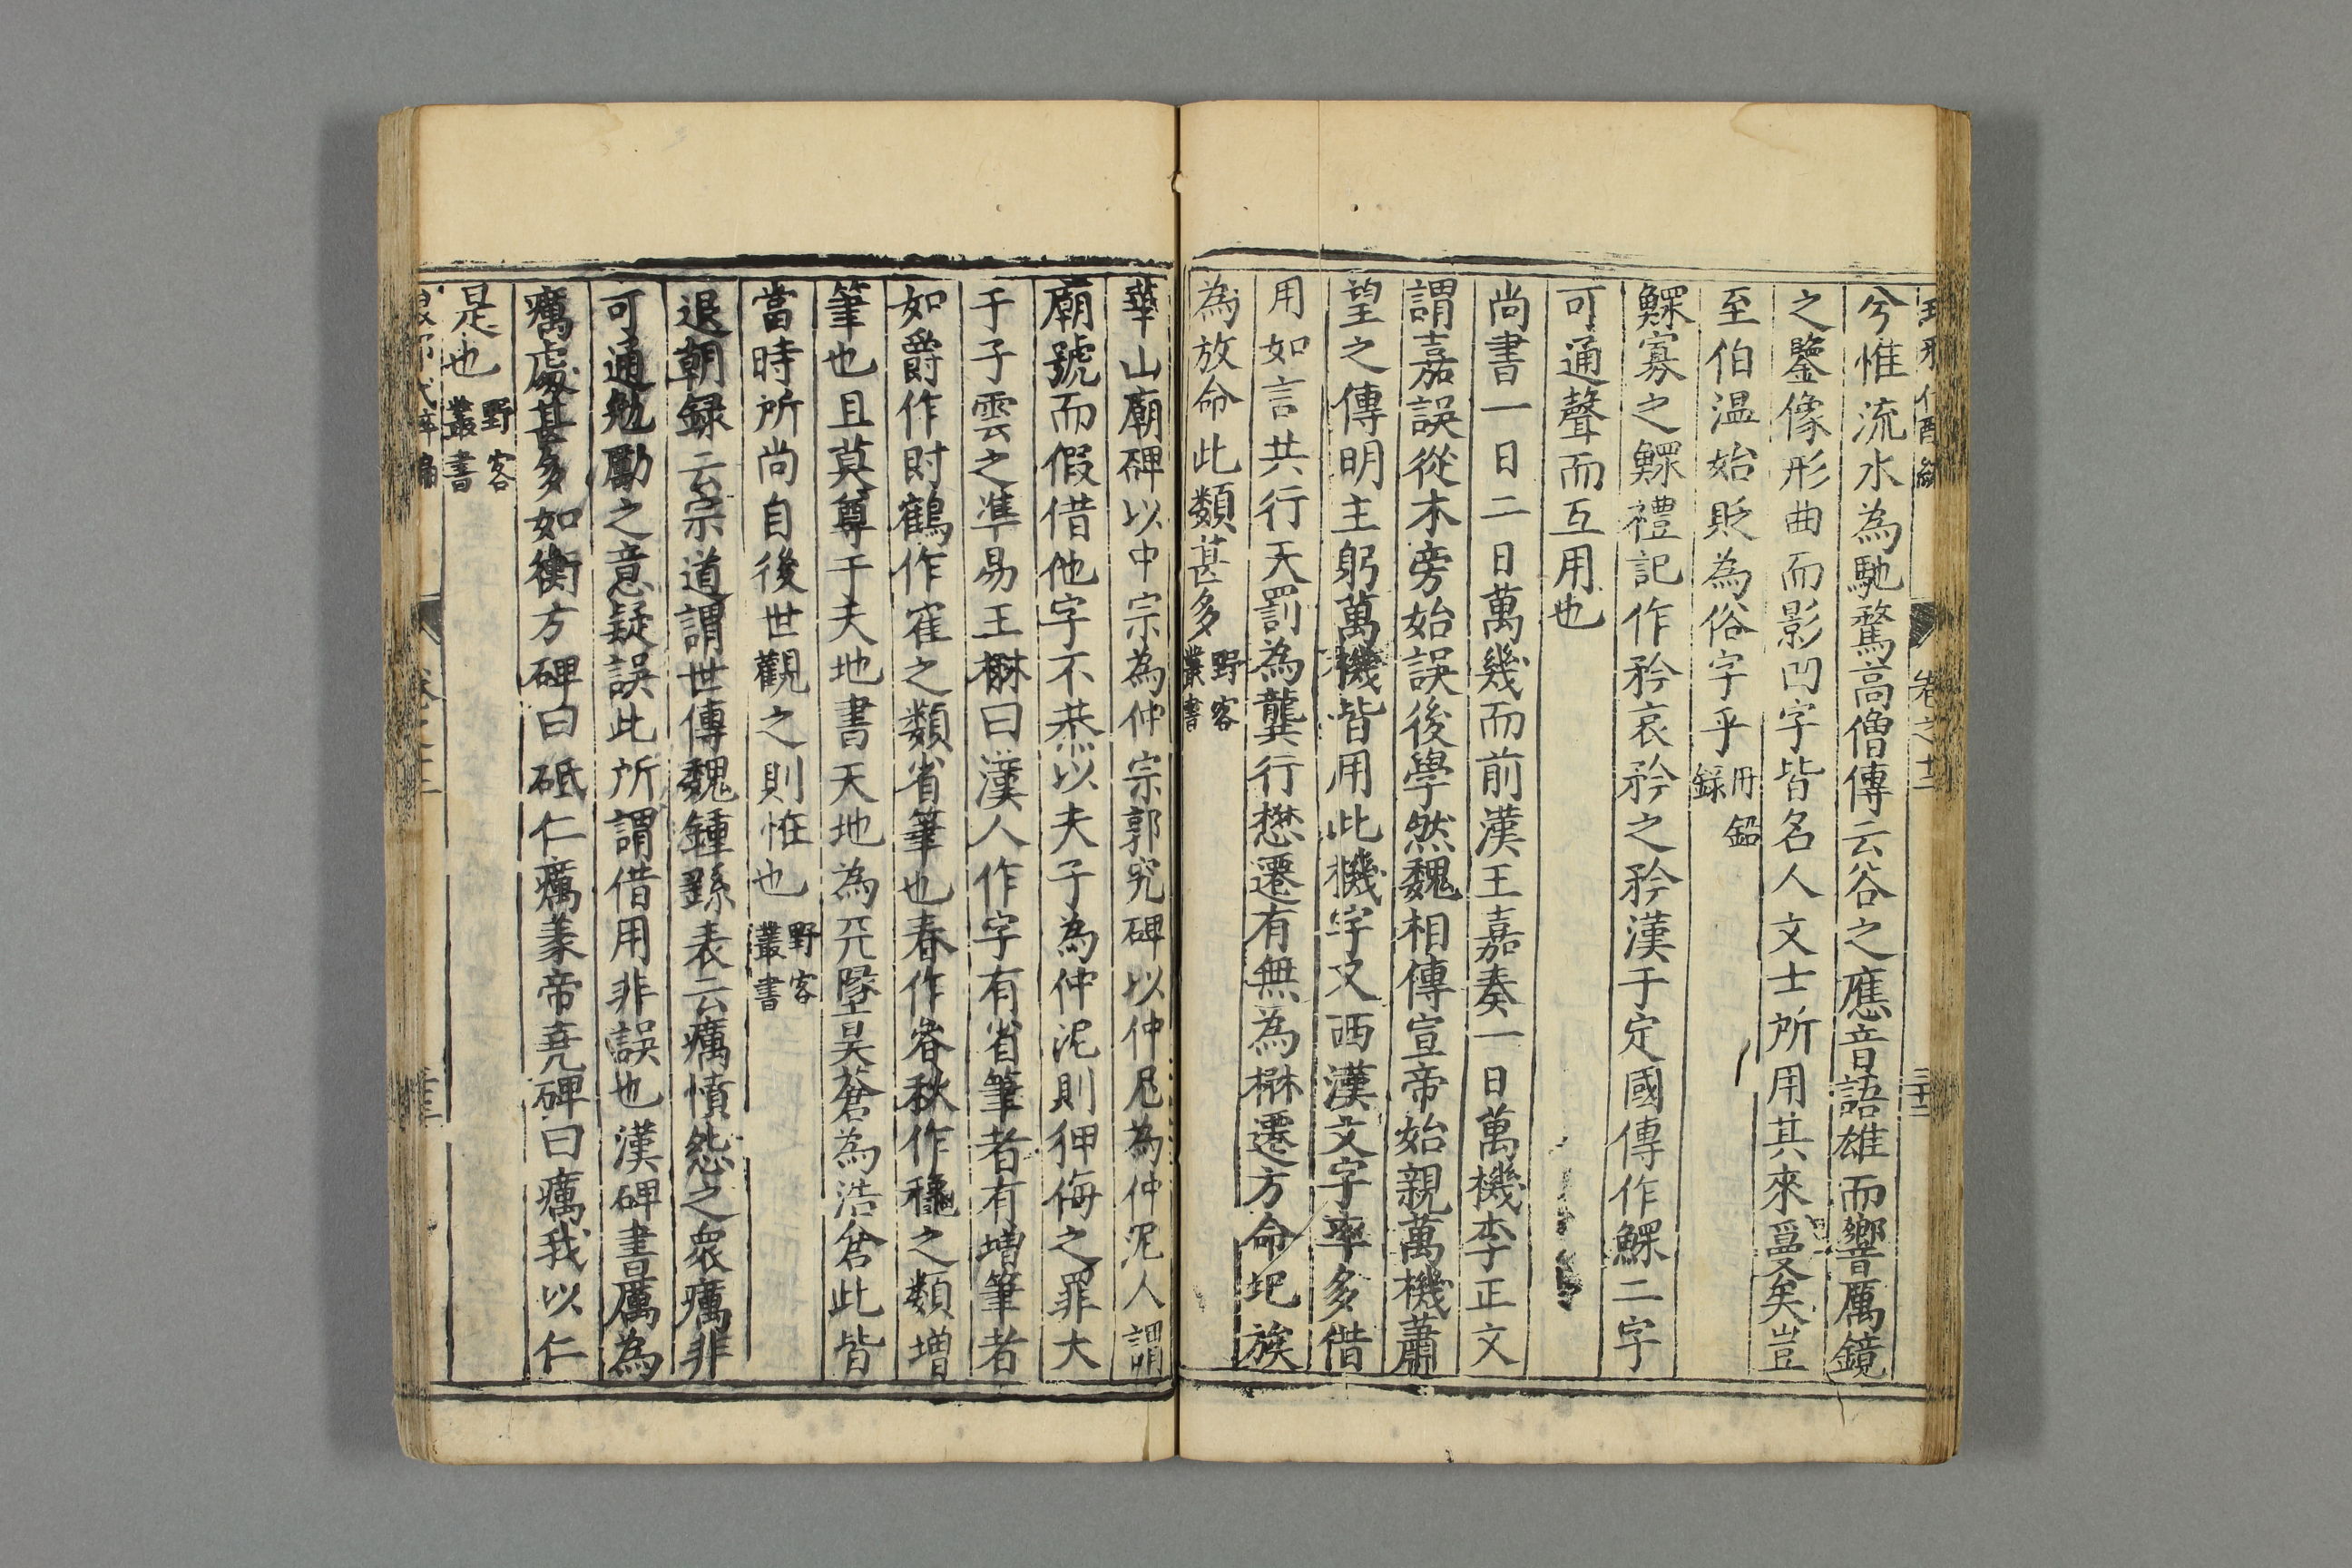 卷之十二
三十二
兮惟流水為馳騖高僧傳云谷之應音語雄而響厲鏡
之鑒像形曲而影凹字皆名人文士所用其來爰矣豈
至伯温始貶為俗字乎丹鉛録
鰥寡之鰥禮記作矜哀矜之矜漢于定國傳作鰥二字
可通聲而互用也
尚書一日二日萬幾而前漢王嘉奏一日萬機李正文
謂嘉誤從木旁始誤後學然魏相傳宣帝始親萬機蕭
望之傳明主躬萬機皆用此機字又西漢文字率多借
用如言共行天罰為龔行懋遷有無為楙遷方命圯族
為放命此類甚多野客叢書
華山廟碑以中宗為仲宗郭究碑以仲尼為仲泥人謂
廟號而假借他字不恭以夫子為仲泥則狎侮之罪大
于子雲之凖易王楙曰漢人作字有省筆者有增筆者
如爵作时鶴作隺之類省筆也春作秋作龝之類增
筆也且莫尊于夫地書天地為兲墬昊蒼為浩倉此皆
當時所尚自後世觀之則恠也野客叢書
退朝録云宗道謂世傳魏鍾繇表云癘憤怨之衆癘非
可通勉勵之意疑誤此所謂借用非誤也漢碑書厲為
癘處甚多如衡方碑曰砥仁癘帝堯碑曰癘我以仁
是也野客叢書